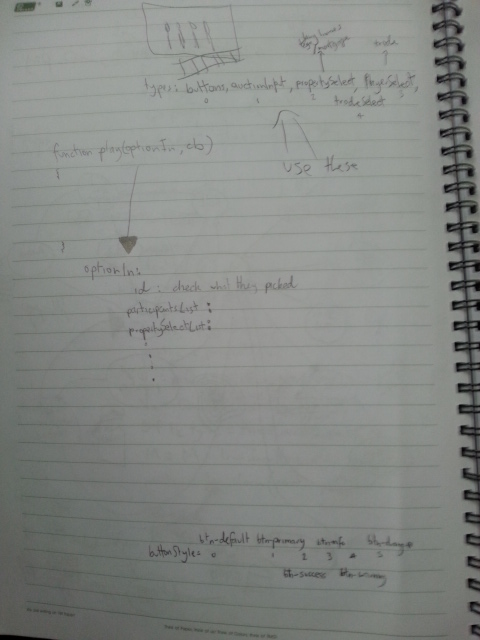 trade
types: buttons, auctionInput, propertySelect, PlayerSelect,
0 1 2
tradeSelect
4
function play(optionIn, cb)
{
use these
}
optionIn:
id : check what they picked
participantsList :
propertySelectList :
btn-default btn-primary btn-info btn-danger
buttonStyle: 0 1 2 3 4 5
btn-success btn-warning